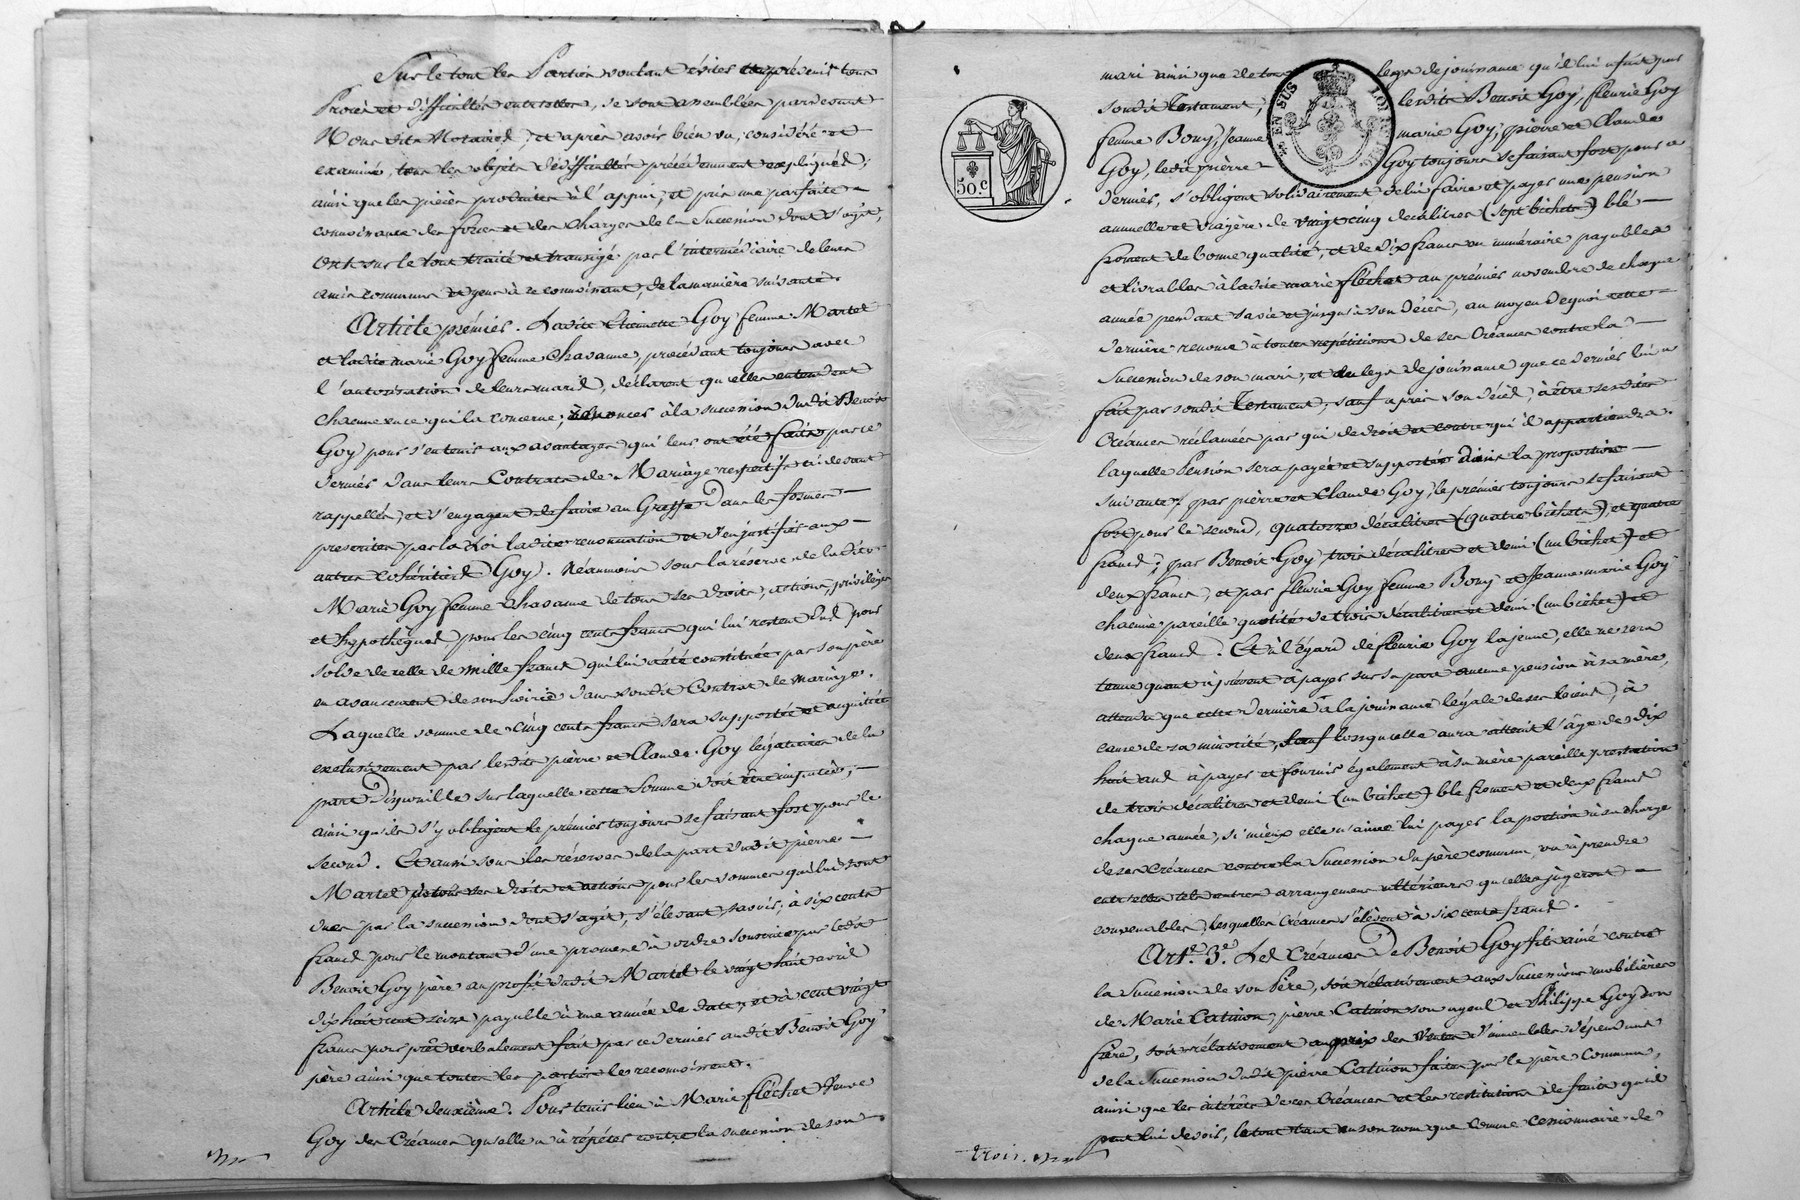 Sur le tout les Parties voulant éviter et prévenir tous
Procès et difficultés entr'elles, se sont assemblées par devant
Nous dits Notaires, et après avoir bien vu, considéré et
examiné, tous les objets de difficultés précédemment expliqués,
ainsi que les pièces produites à l'appui, et pris une parfaite
connoissance des forces et des charges de la Succession dont s'agit,
ont sur le tout traité et transigé par l'intermédiaire de leurs
amis communs et gens à ce connoissant, de la manière suivante
Article prémier. Ladite Etiennette Goy femme Martel
et ladite marie Goy femme Chavanne, procédant toujours avec
l'autorisation de leurs maris, déclarent qu'elles entendent
chacune en ce qui la concerne, renoncer à la succession dudit Benoit
Goy pour s'en tenir aux avantages qui leur ont été faits par ce
dernier dans leurs Contrats de Mariage respectifs ci devant
rappellés, et s'engagent de faire au Greffe dans les formes
prescrites par la Loi ladite renonciation et d'en justifier aux
autres cohéritiers Goy. Néanmoins sous la réserve de ladite
Marie Goy femme Chavanne de tous ses droits, actions, privilèges
et hypothèques, pour les cinq cents francs qui lui restent dus pour
solde de celle de mille francs qui lui a été constituée par son père
en avancement de son hoirie dans son dit Contrat de mariage.
Laquelle somme de cinq cents francs sera supportée et acquittée
exclusivement par lesdits pierre et Claude Goy légataires de la
part disponible sur laquelle cette somme doit être imputée,
ainsi qu'ils s'y obligent le prémier toujours se faisant fort pour le
second. Et aussi sous les réserves de la part dudit pierre
Martel de tous ses droits et actions pour les sommes qui lui sont
dues par la succession dont s'agit, s'élevant, savoir; à six cents
francs pour le montant d'une promesse à ordre souscrite par ledit
Benoit Goy père au profit dudit Martel le vingt huit avril
dix huit cent seize payable à une année de date, et à cent vingt
francs pour prêt verbalement fait par ce dernier audit Benoit Goy
père ainsi que toutes les parties les reconnoissent.
Article deuxième. Pour tenir lieu à Marie fléchet veuve
Goy des Créances qu'elle a à répéter contre la succession de son
mari ainsi que de tous legs de jouissance qu'il lui a fait par
son dit Testament, lesdits Benoit Goy, fleurie Goy
femme Bony, Jeanne marie Goy, pierre et Claude
Goy, ledit pierre Goy toujours se faisant fort pour ce
dernier, s'obligent solidairement de lui faire et payer une pension
annuelle et viagère de vingt cinq décalitres (sept bichets) blé
froment de bonne qualité, et de dix francs en numéraire payables
et livrables à ladite marie fléchet au prémier novembre de chaque
année pendant sa vie et jusqu'à son décès, au moyen de quoi cette
dernière renonce à toutes répétitions de ses Créances contre la
Succession de son mari, et du legs de jouissance que ce dernier lui a
fait par son dit Testament, sauf après son décès, à être ses dites
Créances réclamées par qui de droit et contre qui il appartiendra.
laquelle Pension sera payée et supportée dans la proportion
suivante, par pierre et Claude Goy, le prémier toujours se faisant
fort pour le second, quatorze décalitres (quatre bichets), et quatre
francs; par Benoit Goy trois décalitres et demi (un bichet) et
deux francs, et par fleurie Goy femme Bony et Jeanne marie Goy
chacune pareille quotité de trois décalitres et demi (un bichet) et
deux francs. Et à l'égard de fleurie Goy la jeune, elle ne sera
tenue quant à présent à payer sur sa part aucune pension à sa mère,
attendu que cette dernière a la jouissance légale de ses biens, à
cause de sa minorité, sauf lorsqu'elle aura atteint l'âge de dix
huit ans à payer et fournir également à sa mère pareille prestation
de trois décalitres et demi (un bichet) blé froment et deux francs
chaque année, si mieux elle n'aime lui payer la portion à sa charge
de ses Créances contre la Succession du père commun, ou à prendre
entr'elles tels autres arrangemens ultérieurs qu'elles jugeront
convenables, lesquelles Créances s'élèvent à six cents francs.
Art. 3e. Les Créances de Benoit Goy fils ainé contre
la Succession de son Père, soit relativement aux Successions mobilières
de Marie Catinon, pierre Catinon son ayeul et Philippe Goy son
frère, soit relativement au prix des Ventes d'immeubles dépendant
de la Succession dudit pierre Catinon faites par le père Commun,
ainsi que les intérêts de ces Créances et les restitutions de fruits qu'il
peut lui devoir, le tout tant en son nom que comme cessionnaire de
trois.
50.c
EN SUS
LOI DE 1816